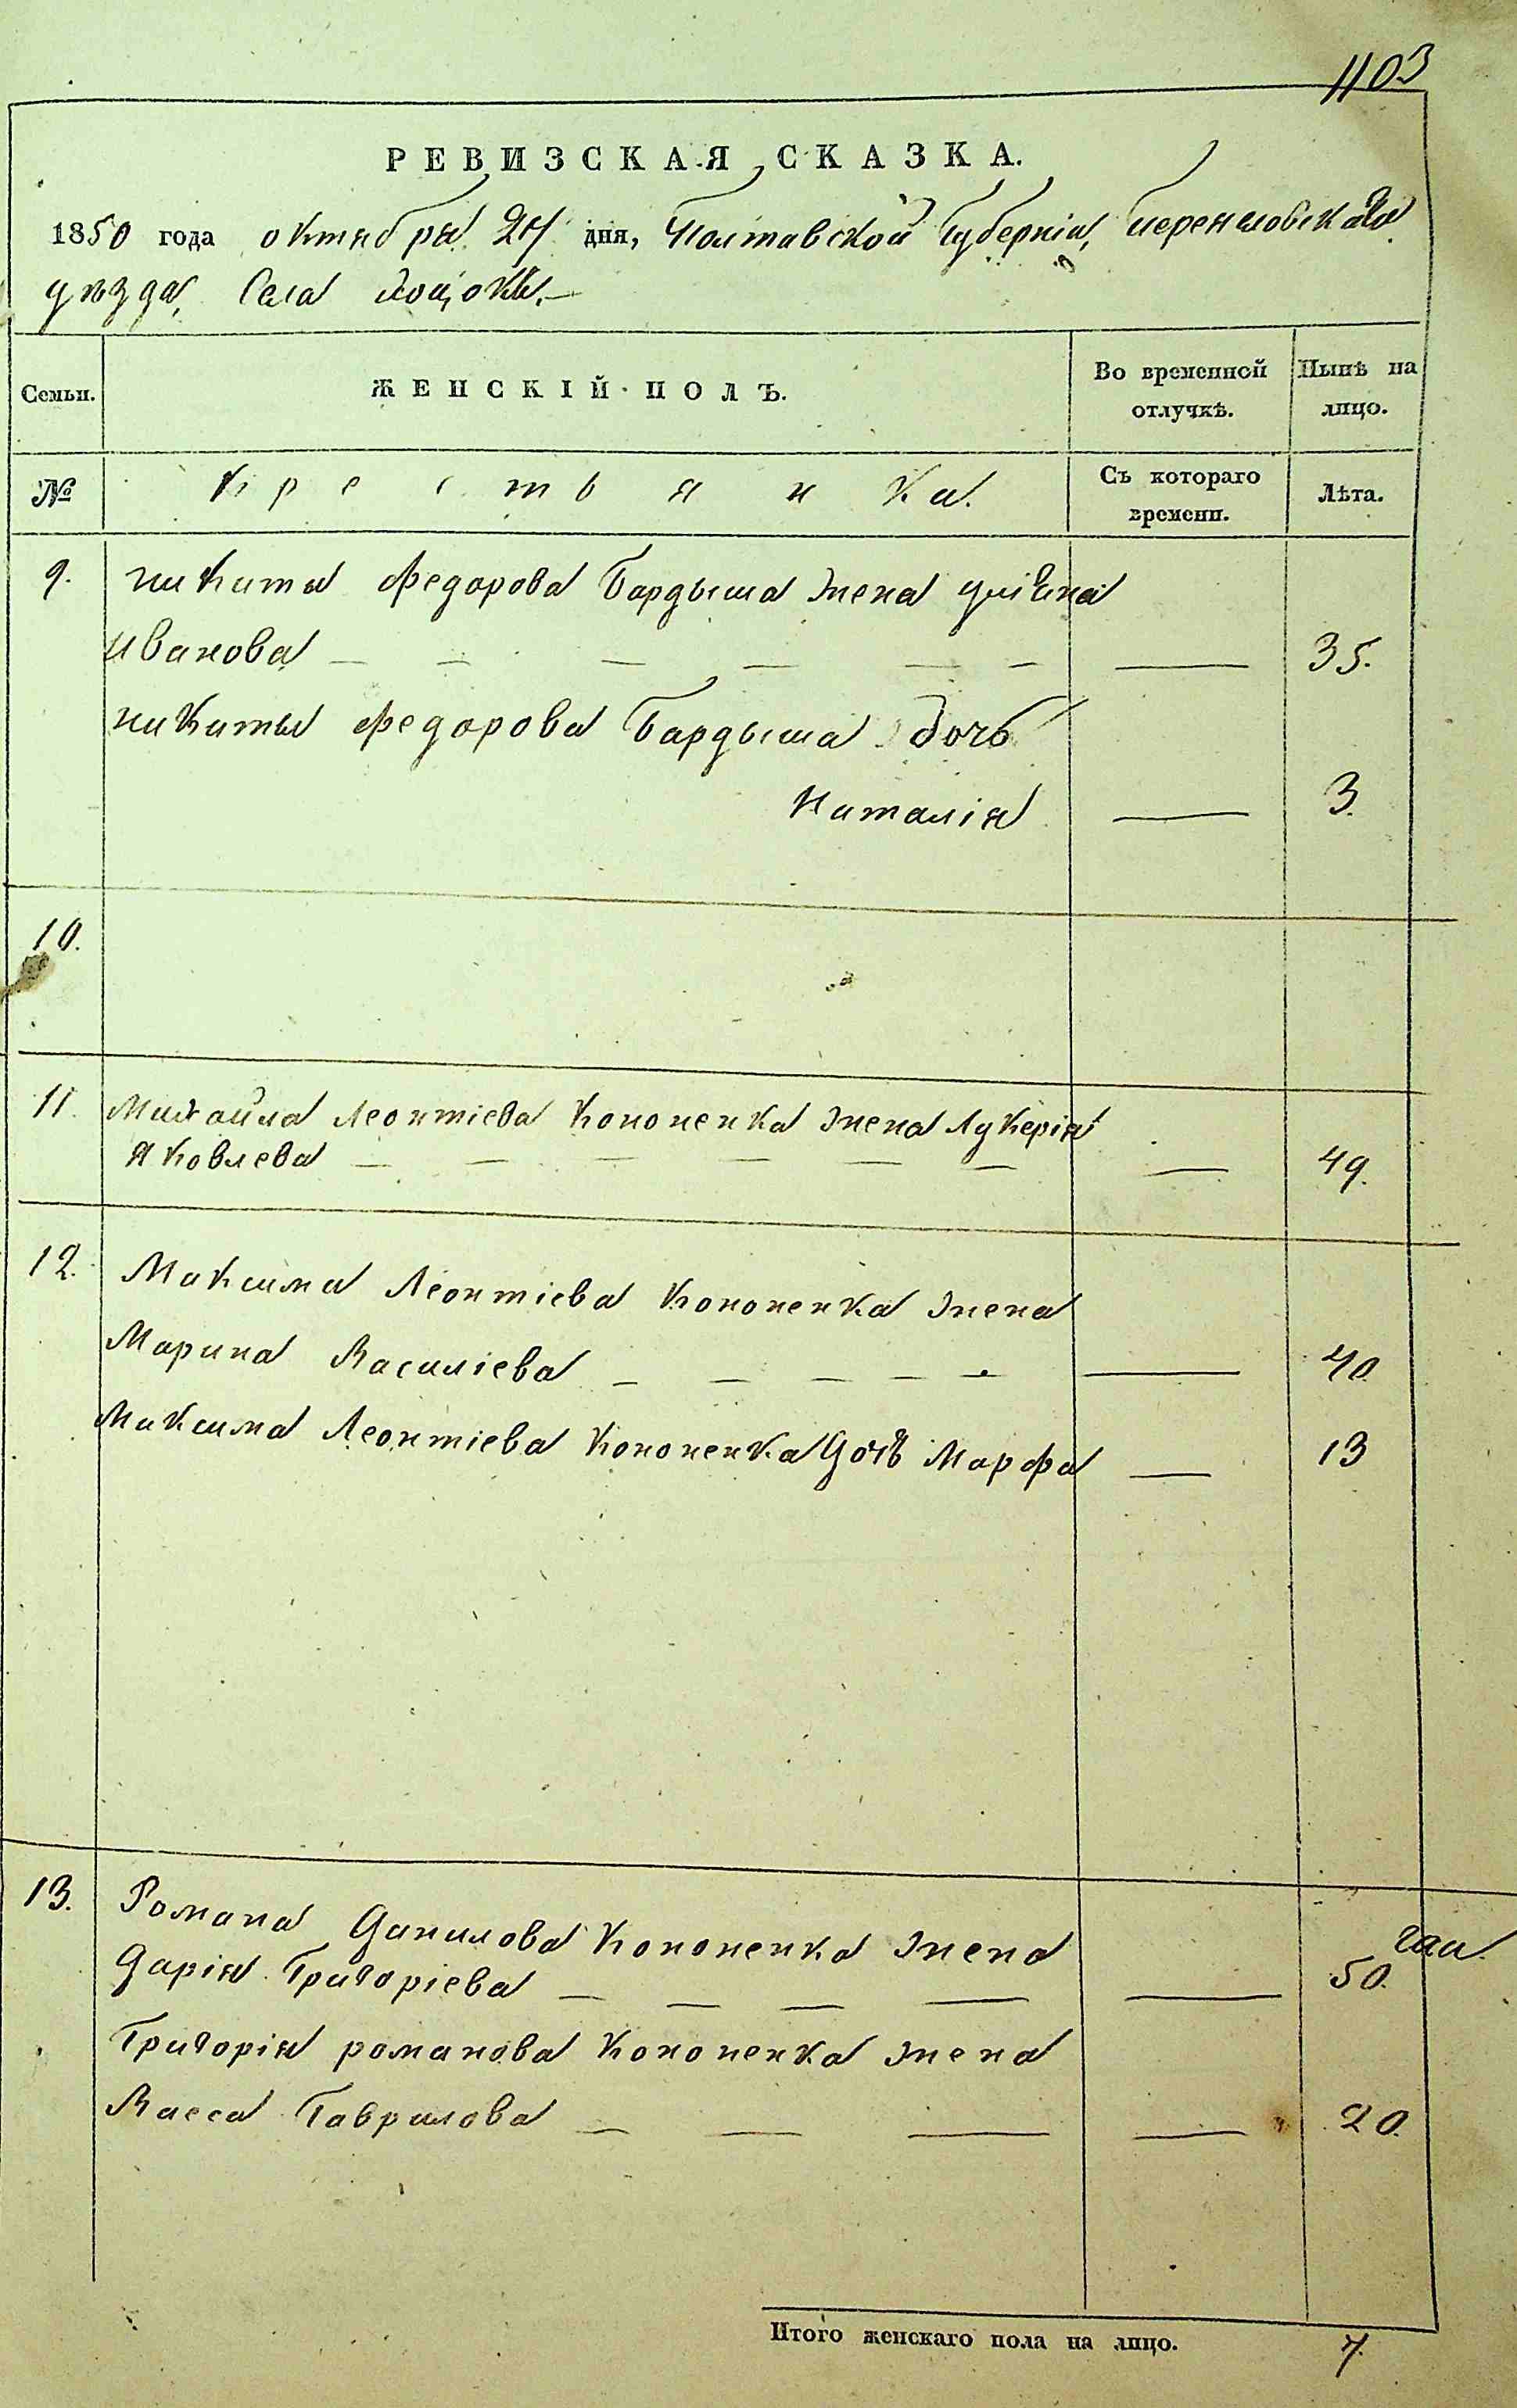 1103
РЕВИЗСКАЯ СКАЗКА.
1850 года октября 24 дня, Полтавской Губерніи, переяловскаго
уѣзда, Села
Семьи. ЖЕНСКІЙ ПОЛЪ. Во временной отлучкѣ. Нынѣ на лицо.
№ крестьянка. Съ котораго времени. Лѣта.
9. никиты Федорова Бардыша жена
Иванова — — — — — — — 35.
никиты Федорова Бардыша дочь
Наталія — 3.
10.
11. Михайла Леонтіева Кононенка жена Лукерія
Яковлева — — — — — — — 49.
12. Максима Леонтіева Кононенка жена
Марина Василіева — — — — — — 40
Максима Леонтіева Кононенка дочь Марфа — 13
13. Романа Данилова Кононенка жена
Дарія Григоріева — — — — — 50.
Григорія романова Кононенка жена
Васса Гаврилова — — — — 20.
Итого женскаго пола на лицо. 7.